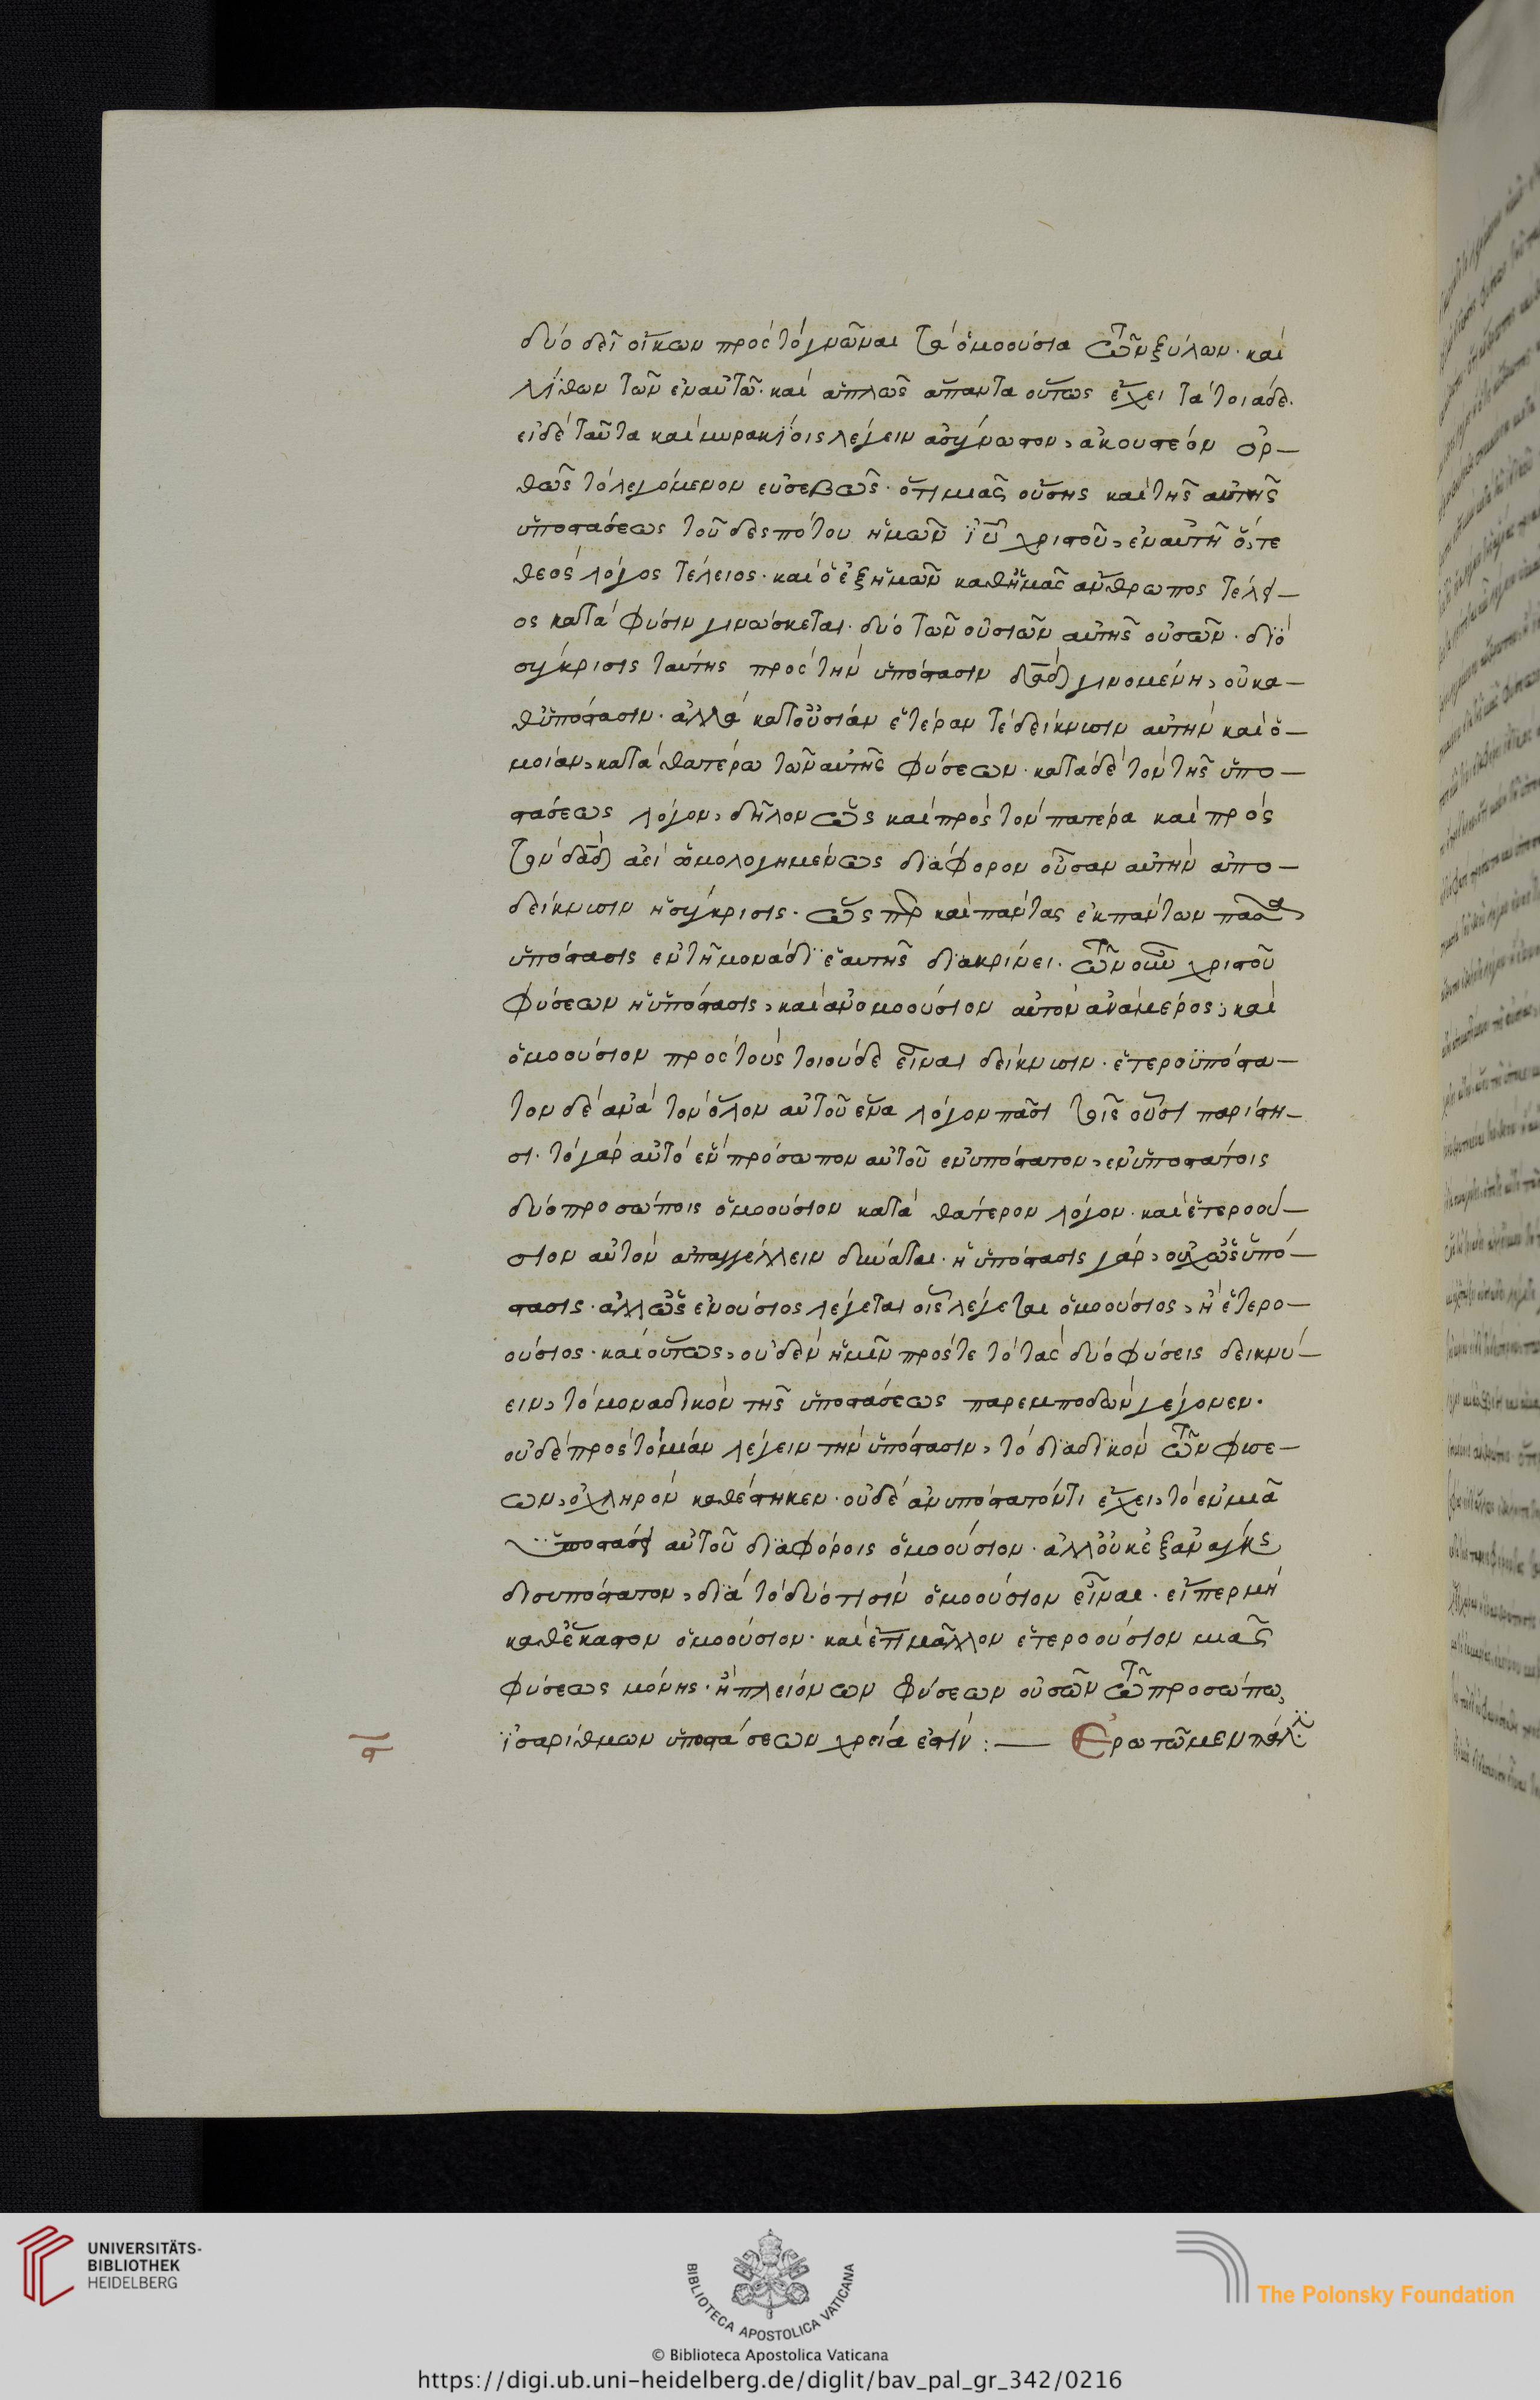 δύο δεῖ οἴκων πρὸς τὸ γνῶναι τὰ ὁμοούσια τῶν ξύλων· καὶ
λίθων τῶν ἐν αὐτῶ· καὶ ἁπλῶς ἅπαντα οὕτως ἔχει τὰ τοιάδε.
εἰ δὲ ταῦτα καὶ μειρακίοις λέγειν ἀσύνωπτον, ἀκουστέον ὀρ–
θῶς τὸ λεγόμενον εὐσεβῶς· ὅτι μιᾶς οὔσης καὶ τῆς αὐτῆς
ὑποστάσεως τοῦ δεσπότου ἡμῶν ϊῦ χριστοῦ, ἐν αὐτῆ ὅ, τε
θεὸς λόγος τέλειος· καὶ ὁ ἐξ ἡμῶν καθ' ἡμᾶς ἄνθρωπος τέλει–
ος κατὰ φύσιν γινώσκεται· δύο τῶν οὐσιῶν αὐτῆς οὐσῶν· διὸ
σύγκρισις ταύτης πρὸς τὴν ὑπόστασιν δᾱδ γινομένη, οὐ κα–
θ' ὑπόστασιν· ἀλλὰ κατ' οὐσίαν ἑτέραν τὲ δείκνυσιν αὐτὴν καὶ ὁ–
μοίαν, κατὰ θατέρω τῶν αὐτῆς φύσεων· κατὰ δὲ τὸν τῆς ὑπο–
στάσεως λόγον, δῆλον ὡς καὶ πρὸς τὸν πατέρα καὶ πρὸς
τὸν δᾱδ ἀεὶ ὡμολογημένως διάφορον οὖσαν αὐτὴν ἀπο–
δείκνυσιν ἡ σύγκρισις· ὥς περ καὶ πάντας ἐκ πάντων πᾶσα
ὑπόστασις ἐν τῆ μονάδι ἑαυτῆς διακρίνει· τῶν οὖν χριστοῦ
φύσεων ἡ ὑπόστασις, καὶ ἀνομοούσιον αὐτὸν ἀνὰ μέρος, καὶ
ὁμοούσιον πρὸς τοὺς τοιούδε εἶναι δείκνυσιν· ἑτεροϋπόστα–
τον δὲ ἀνὰ τὸν ὅλον αὐτοῦ ἕνα λόγον πᾶσι τοῖς οὖσι παρίστη–
σι· τὸ γὰρ αὐτὸ ἓν πρόσωπον αὐτοῦ ἐνυπόστατον, ἐνυποστάτοις
δύο προσώποις ὁμοούσιον κατὰ θάτερον λόγον· καὶ ἑτεροού–
σιον αὐτὸν ἀπαγγέλλειν δύναται· ἡ ὑπόστασις γὰρ, οὐχ ὡς ὑπό–
στασις· ἀλλ' ὡς ἐνούσιος λέγεται οἷς λέγεται ὁμοούσιος, ἢ ἑτερο–
ούσιος· καὶ οὕτως, οὐδὲν ἡμῖν πρός τε τὸ τὰς δύο φύσεις δεικνύ–
ειν, τὸ μοναδικὸν τῆς ὑποστάσεως παρεμποδὼν γέγονεν·
οὐδὲ πρὸς τὸ μίαν λέγειν τὴν ὑπόστασιν, τὸ διαδϊκὸν τῶν φύσε–
ων, ὀχληρὸν καθέστηκεν· οὐδὲ ἀνυπόστατόν τι ἔχει, τὸ ἐν μιᾶ
ὑποστάσει αὐτοῦ διαφόροις ὁμοούσιον· ἀλλ' οὐκ ἐξ ἀνάγκης
δισυπόστατον, διὰ τὸ δυό τισιν ὁμοούσιον εἶναι· εἴπερ μὴ
καθ' ἕκαστον ὁμοούσιον· καὶ ἔτι μᾶλλον ἑτεροούσιον μιᾶς
φύσεως μόνης· ἢ πλειόνων φύσεων οὐσῶν τῶ προσώπω,
ϊσαρίθμων ὑποστάσεων χρεία ἐστίν :— Ἐρωτῶμεν πάλιν
© Biblioteca Apostolica Vaticana
https://digi.ub.uni-heidelberg.de/diglit/bav_pal_gr_342/0216
UNIVERSITÄTS-
BIBLIOTHEK
HEIDELBERG
BIBLIOTECA APOSTOLICA VATICANA
The Polonsky Foundation